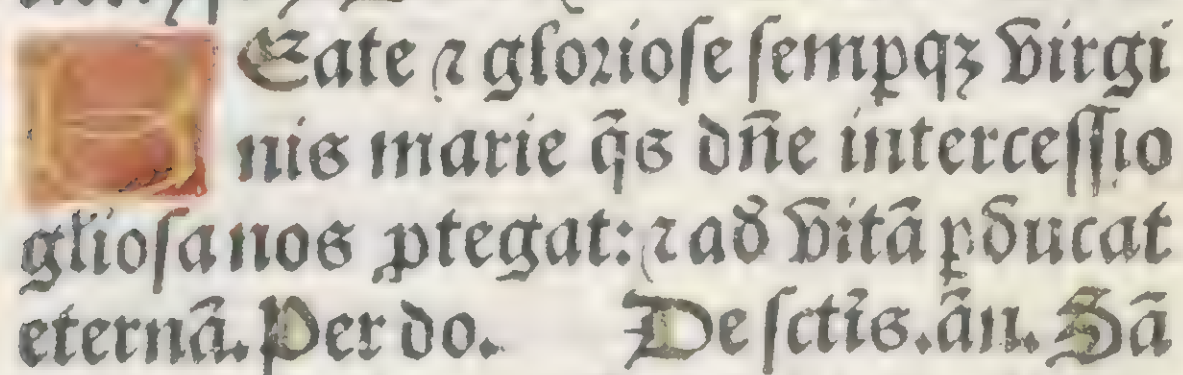 BEate ⁊ glorioſe ſemꝑqꝫ virgi
nis marie q̄s dn̄e interceſſio
gl̓ioſa nos ꝓtegat: ⁊ ad vitā ꝑducat
eternā. Per do. De ſctīs. ān. Sā